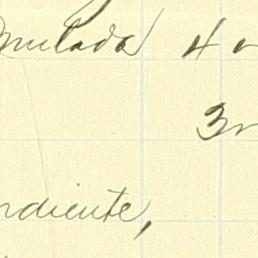 mulada 4
3
ndiente,